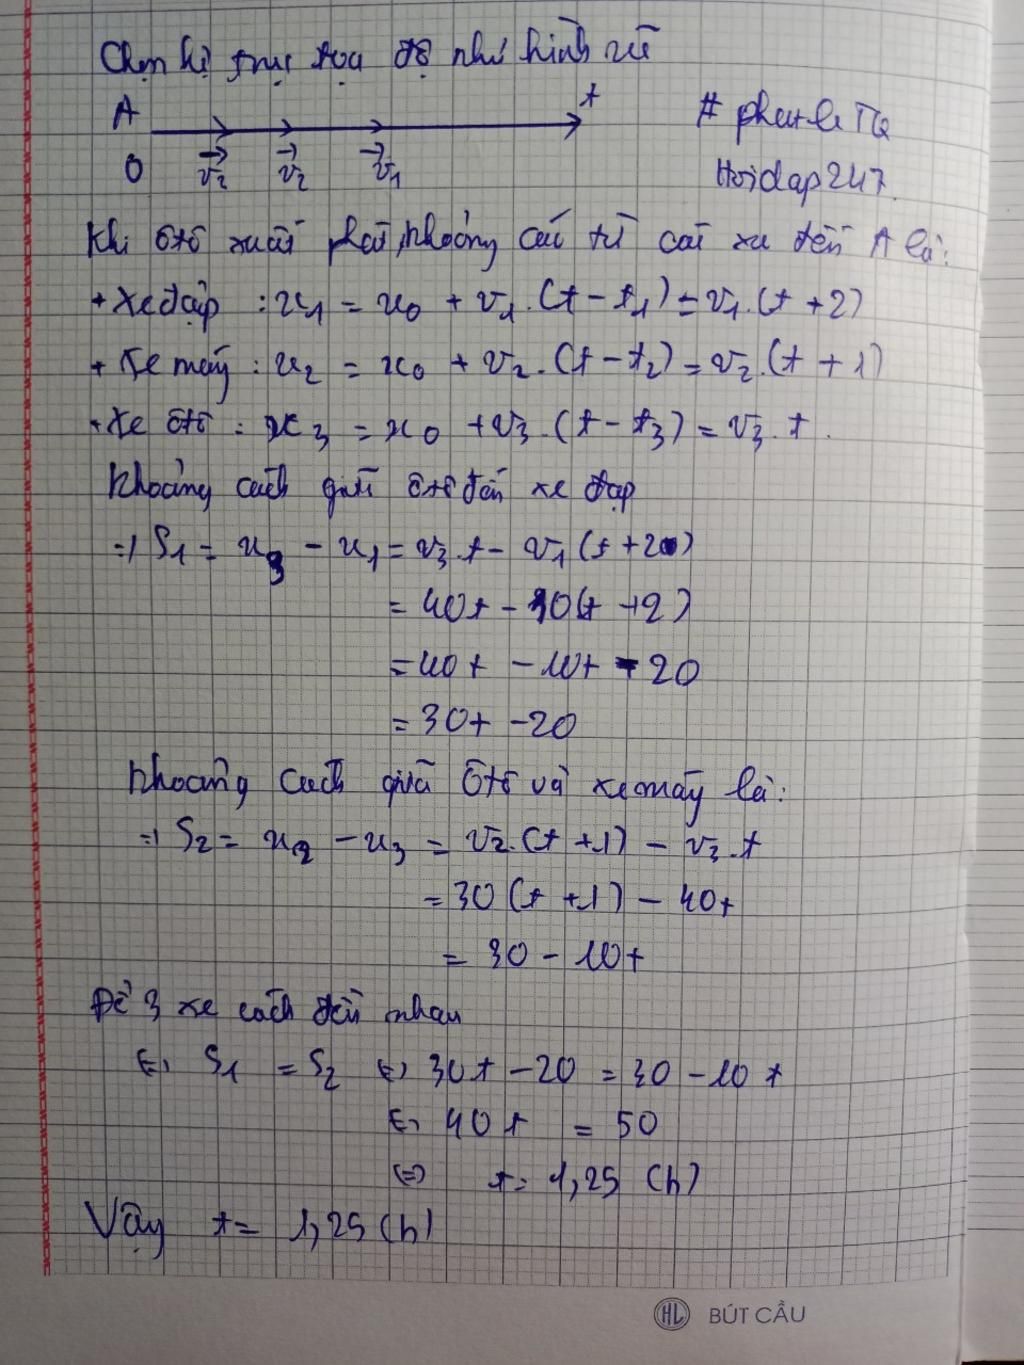 Chọn hệ trục tọa độ như hình vẽ
A
+
O
v₂
v₂
v₁
Hoidap247.
Khi ôtô xuất phát, khoảng các từ các xe đến A là:
+ Xe đạp : x₁ = x₀ + v₁.(t - t₁) = v₁.(t + 2)
+ Xe máy : x₂ = x₀ + v₂.(t - t₂) = v₂.(t + 1)
+ Xe ôtô : x₃ = x₀ + v₃.(t - t₃) = v₃.t.
Khoảng cách giữa ôtô đến xe đạp
=> S₁ = x₃ - x₁ = v₃.t - v₁(t + 2)
= 40t - 10(t + 2)
= 40t - 10t - 20
= 30t - 20
Khoảng cách giữa ôtô và xe máy là:
=> S₂ = x₂ - x₃ = v₂.(t + 1) - v₃.t
= 30(t + 1) - 40t
= 30 - 10t
Để 3 xe cách đều nhau
<=> S₁ = S₂ <=> 30t - 20 = 30 - 10t
<=> 40t = 50
<=> t = 1,25 (h)
Vậy t = 1,25 (h)
HL BÚT CẦU